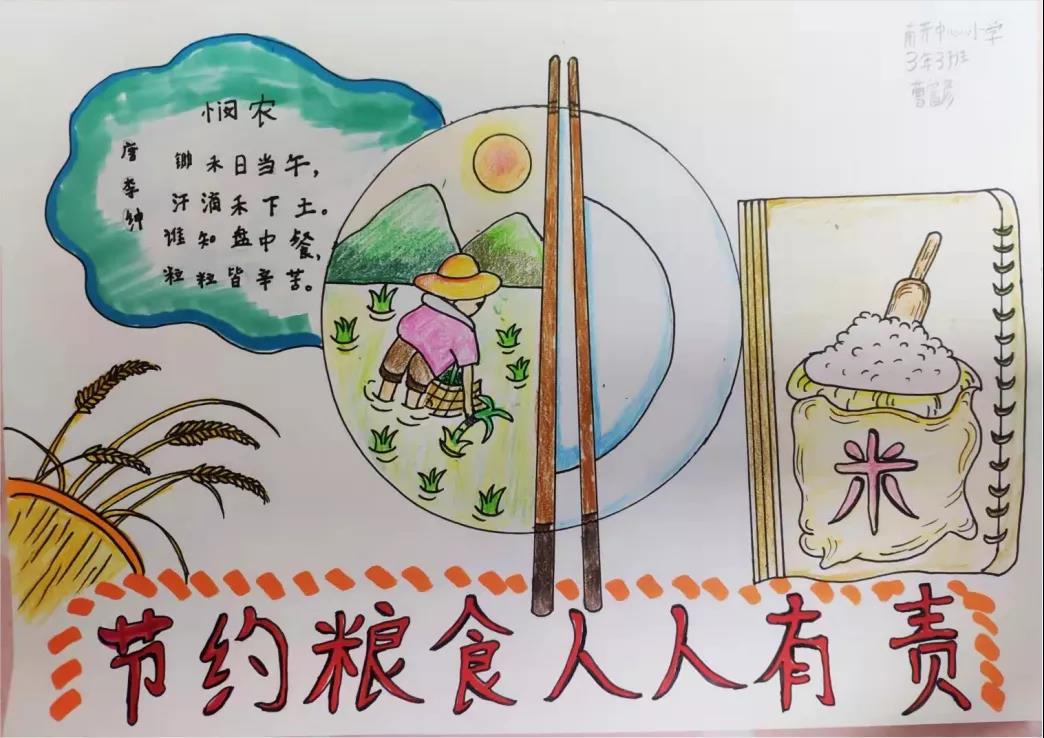 悯农
唐 李绅
锄禾日当午，
汗滴禾下土。
谁知盘中餐，
粒粒皆辛苦。
中心小学
3年3班
米
节约粮食人人有责